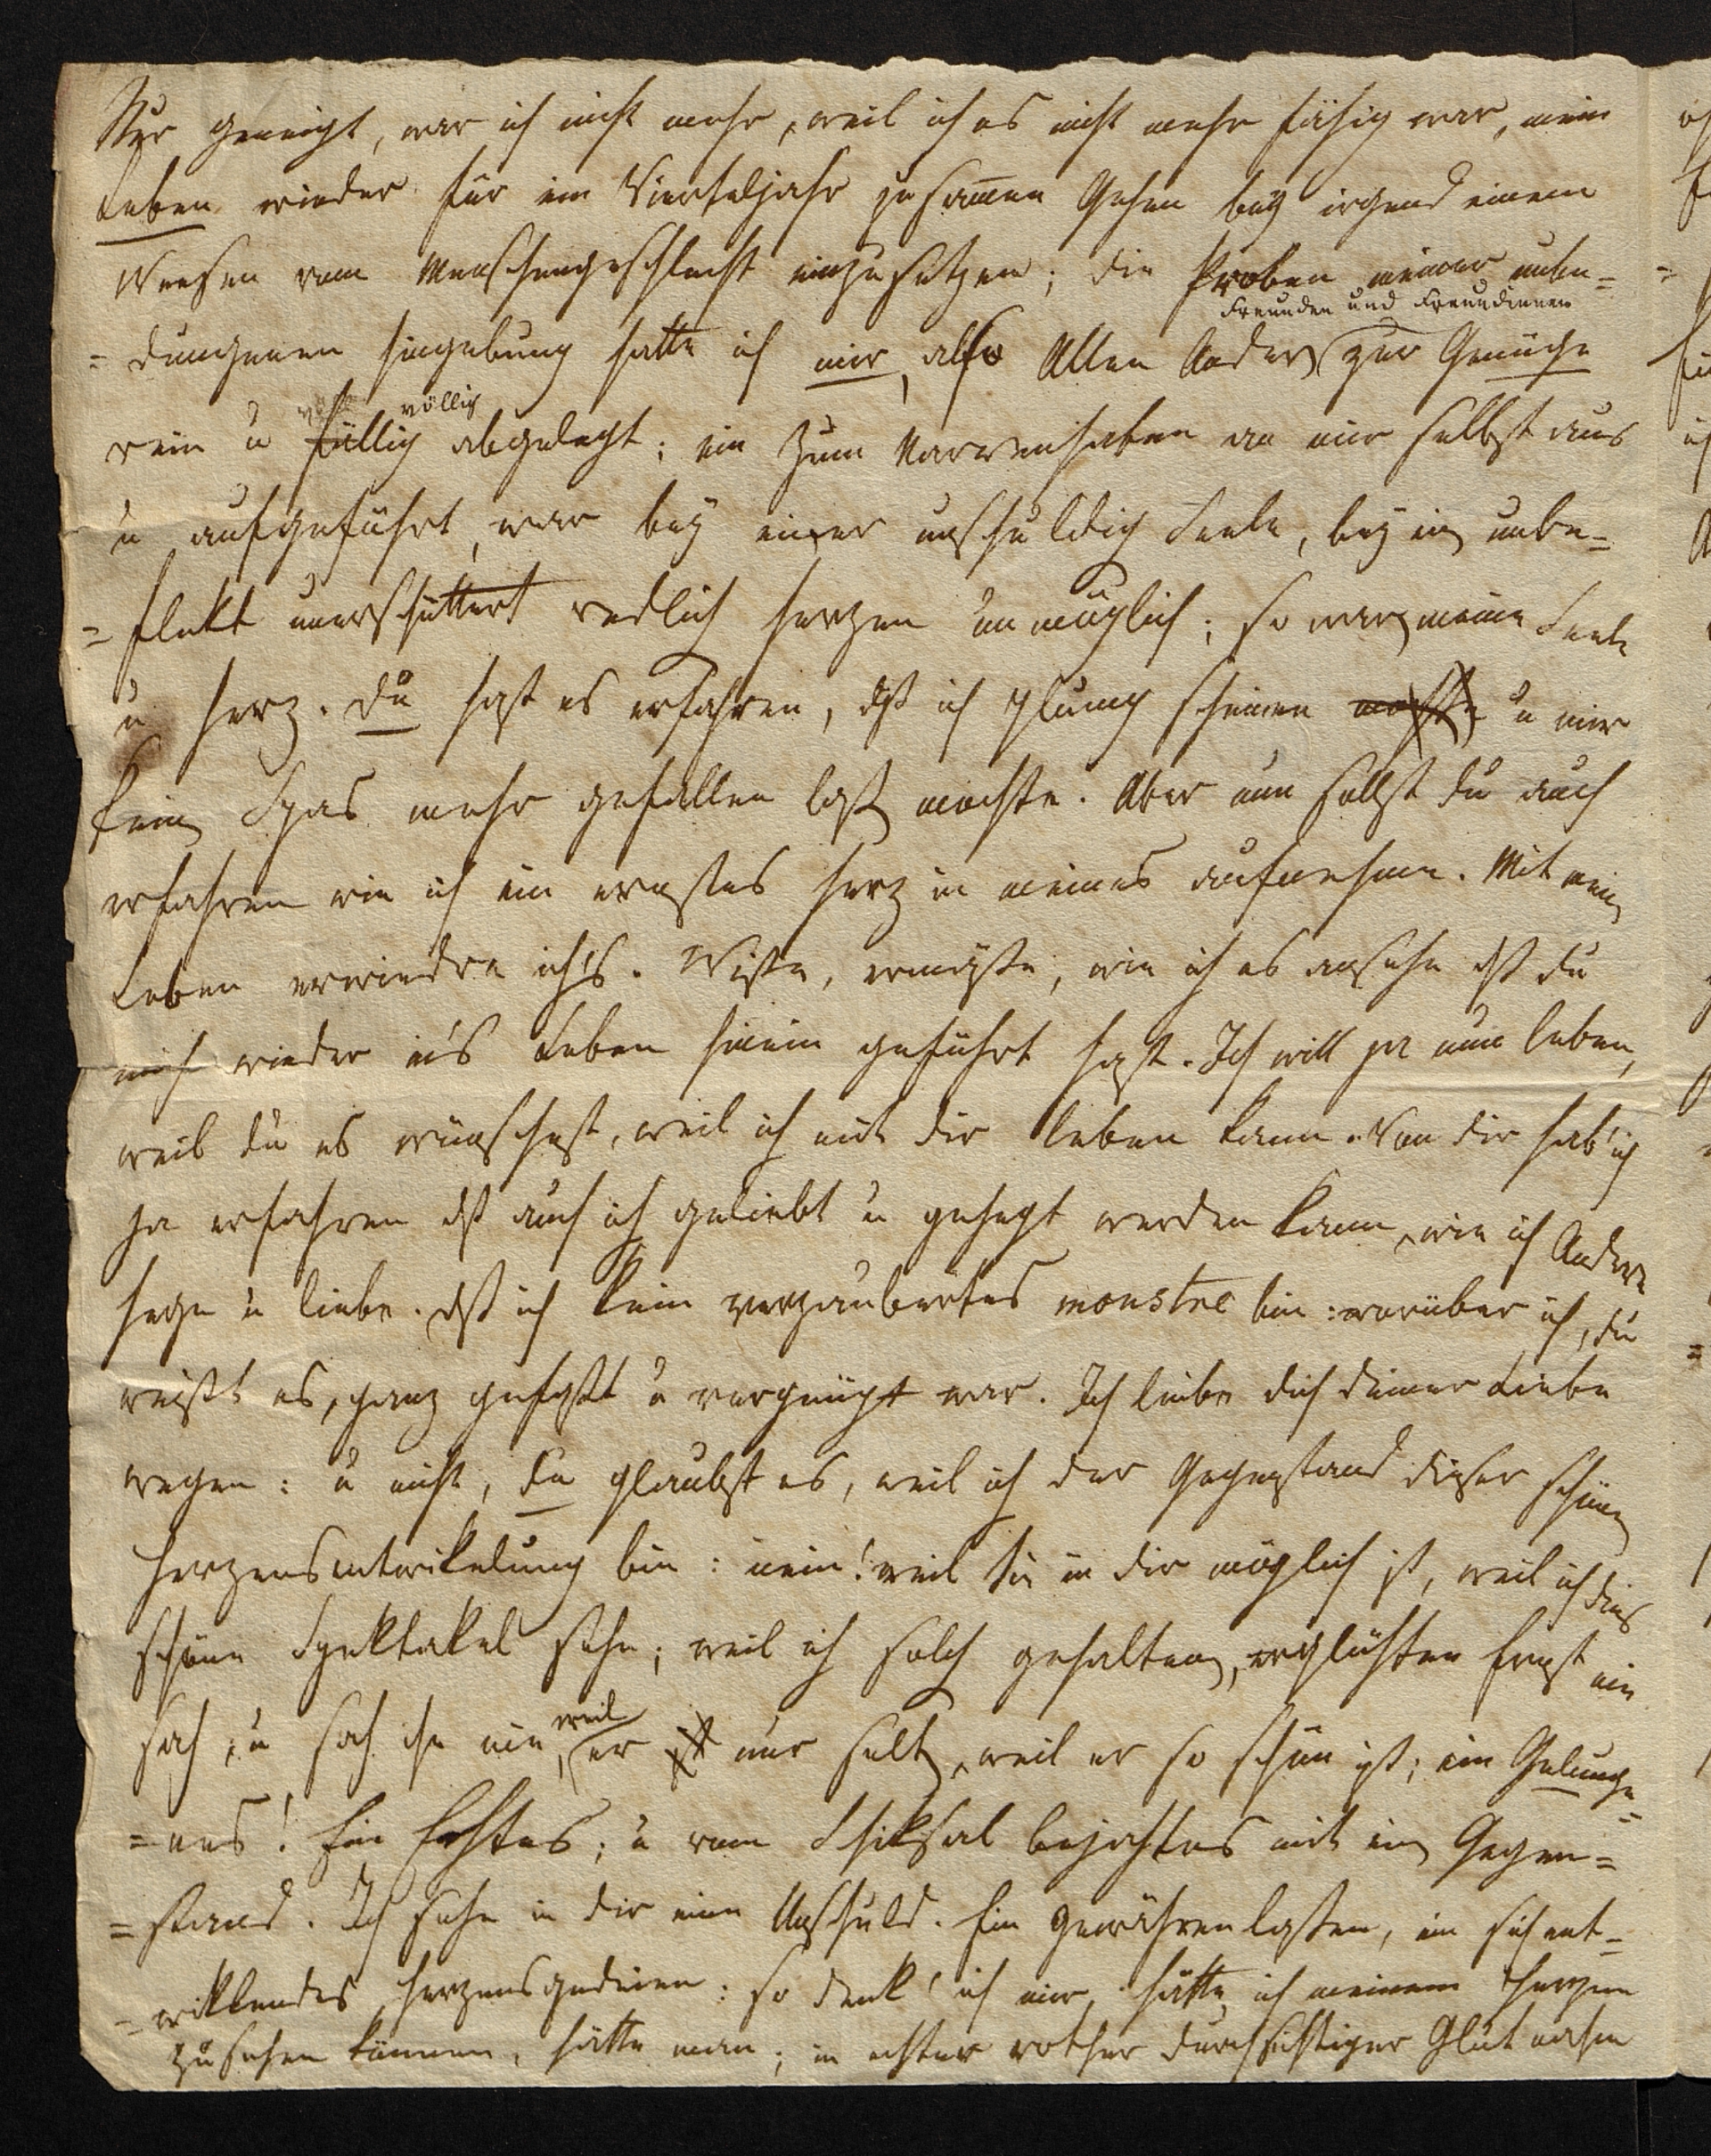 Nur geneigt, war ich nicht mehr, weil ich es nicht mehr fähig war, mein
Leben wieder für ein Vierteljahr zusam̄en Gehen bey irgend einem
Weesen vom Menschengeschlecht einzusetzen; die Proben meiner unbe=
Freunden und Freundinnen
=dungenen Hingebung hatte ich mir, also Allen Andern zur Genüge
völlig
rein u füllig abgelegt; ein zum Narrenhaben an mir selbst aus
u aufgeführt, war bey einer unschuldig Seele, bey ein unbe=
=flekt unerschüttert redlich Herzen unmöglich; so war meine Seele
u Herz. Du hast es erfahren, dß ich plump scheinen mochte u mir
kein Spas mehr gefallen laß mochte. Aber nun sollst du auch
erfahren wie ich ein ernstes Herz in meines aufnehme. Mit mein
Leben erwiedre ich's. Wiße, ermeße, wie ich es ansehe dß du
mich wieder in's Leben hinein geführt hast. Ich will ja nun leben,
weil du es wünschest, weil ich mit dir leben kann. Von dir hab' ich
ja erfahren dß auch ich geliebt u gehegt werden kann, wie ich Andere
hege u liebe. dß ich kein verzaubertes monstre bin: worüber ich, du
weißt es, ganz gefaßt u vergnügt war. Ich liebe dich deiner Liebe
wegen: u nicht, du glaubst es, weil ich der Gegenstand dieser schönen
Herzensentwikelung bin: nein! weil sie in dir möglich ist, weil ich dies
schöne Spektakel sehe; weil ich solch gehalten, erglühten Ernst nie
sah, u sah ihn nie, weil
er ist nur selten, weil er so schön ist; ein Gelunge=
=nes! Ein Echtes; u vom Schiksal bejahtes mit ein Gegen=
=stand. Ich sehe in dir eine Unschuld. Ein Gewährenlaßen, ein sich ent=
=wikkelndes Herzensgedeien: so denk' ich mir, hätte ich meinem Herzen
zusehen können, hätte man; in echter rother durchsichtiger Glut